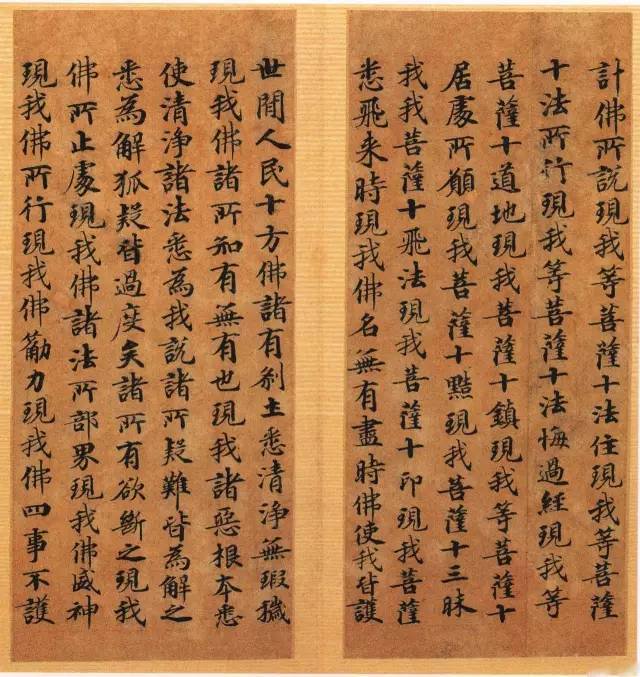 計佛所說現我等菩薩十法住現我等菩薩
十法所行現我等菩薩十法悔過經現我等
菩薩十道地現我菩薩十鎮現我等菩薩十
居處所願現我菩薩十黠現我菩薩十三昧
我我菩薩十飛法現我菩薩十印現我菩薩
悉飛来時現我佛名無有盡時佛使我皆護
世間人民十方佛諸有剎土悉清淨無瑕穢
現我佛諸所知有無有也現我諸惡根本悉
使清淨諸法悉為我說諸所疑難皆為解之
悉為解狐疑皆過度矣諸所有欲斷之現我
佛所止處現我佛諸法所部界現我佛威神
現我佛所行現我佛筋力現我佛四事不護